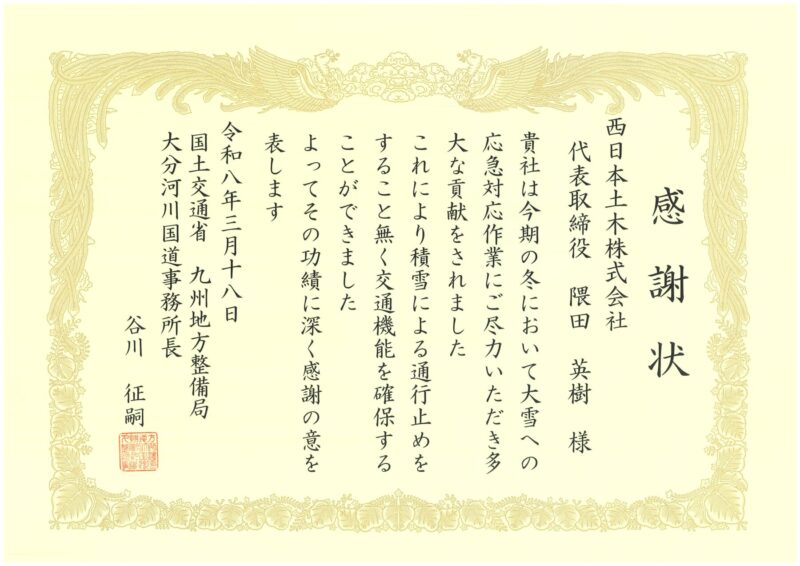 感謝状
西日本土木株式会社
代表取締役 隈田 英樹 様
貴社は今期の冬において大雪への
応急対応作業にご尽力いただき多
大な貢献をされました
これにより積雪による通行止めを
すること無く交通機能を確保する
ことができました
よってその功績に深く感謝の意を
表します
令和八年三月十八日
国土交通省 九州地方整備局
大分河川国道事務所長
谷川 征嗣